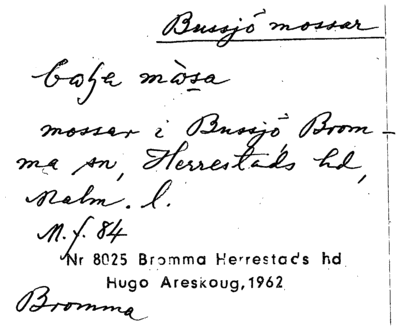 Bussjö mossar
mossar i Bussjö, Brom-
ma sn, Herrestads hd,
Malm. l.
M.f. 84
Nr 8025 Bromma Herrestads hd
Hugo Areskoug, 1962
Bromma